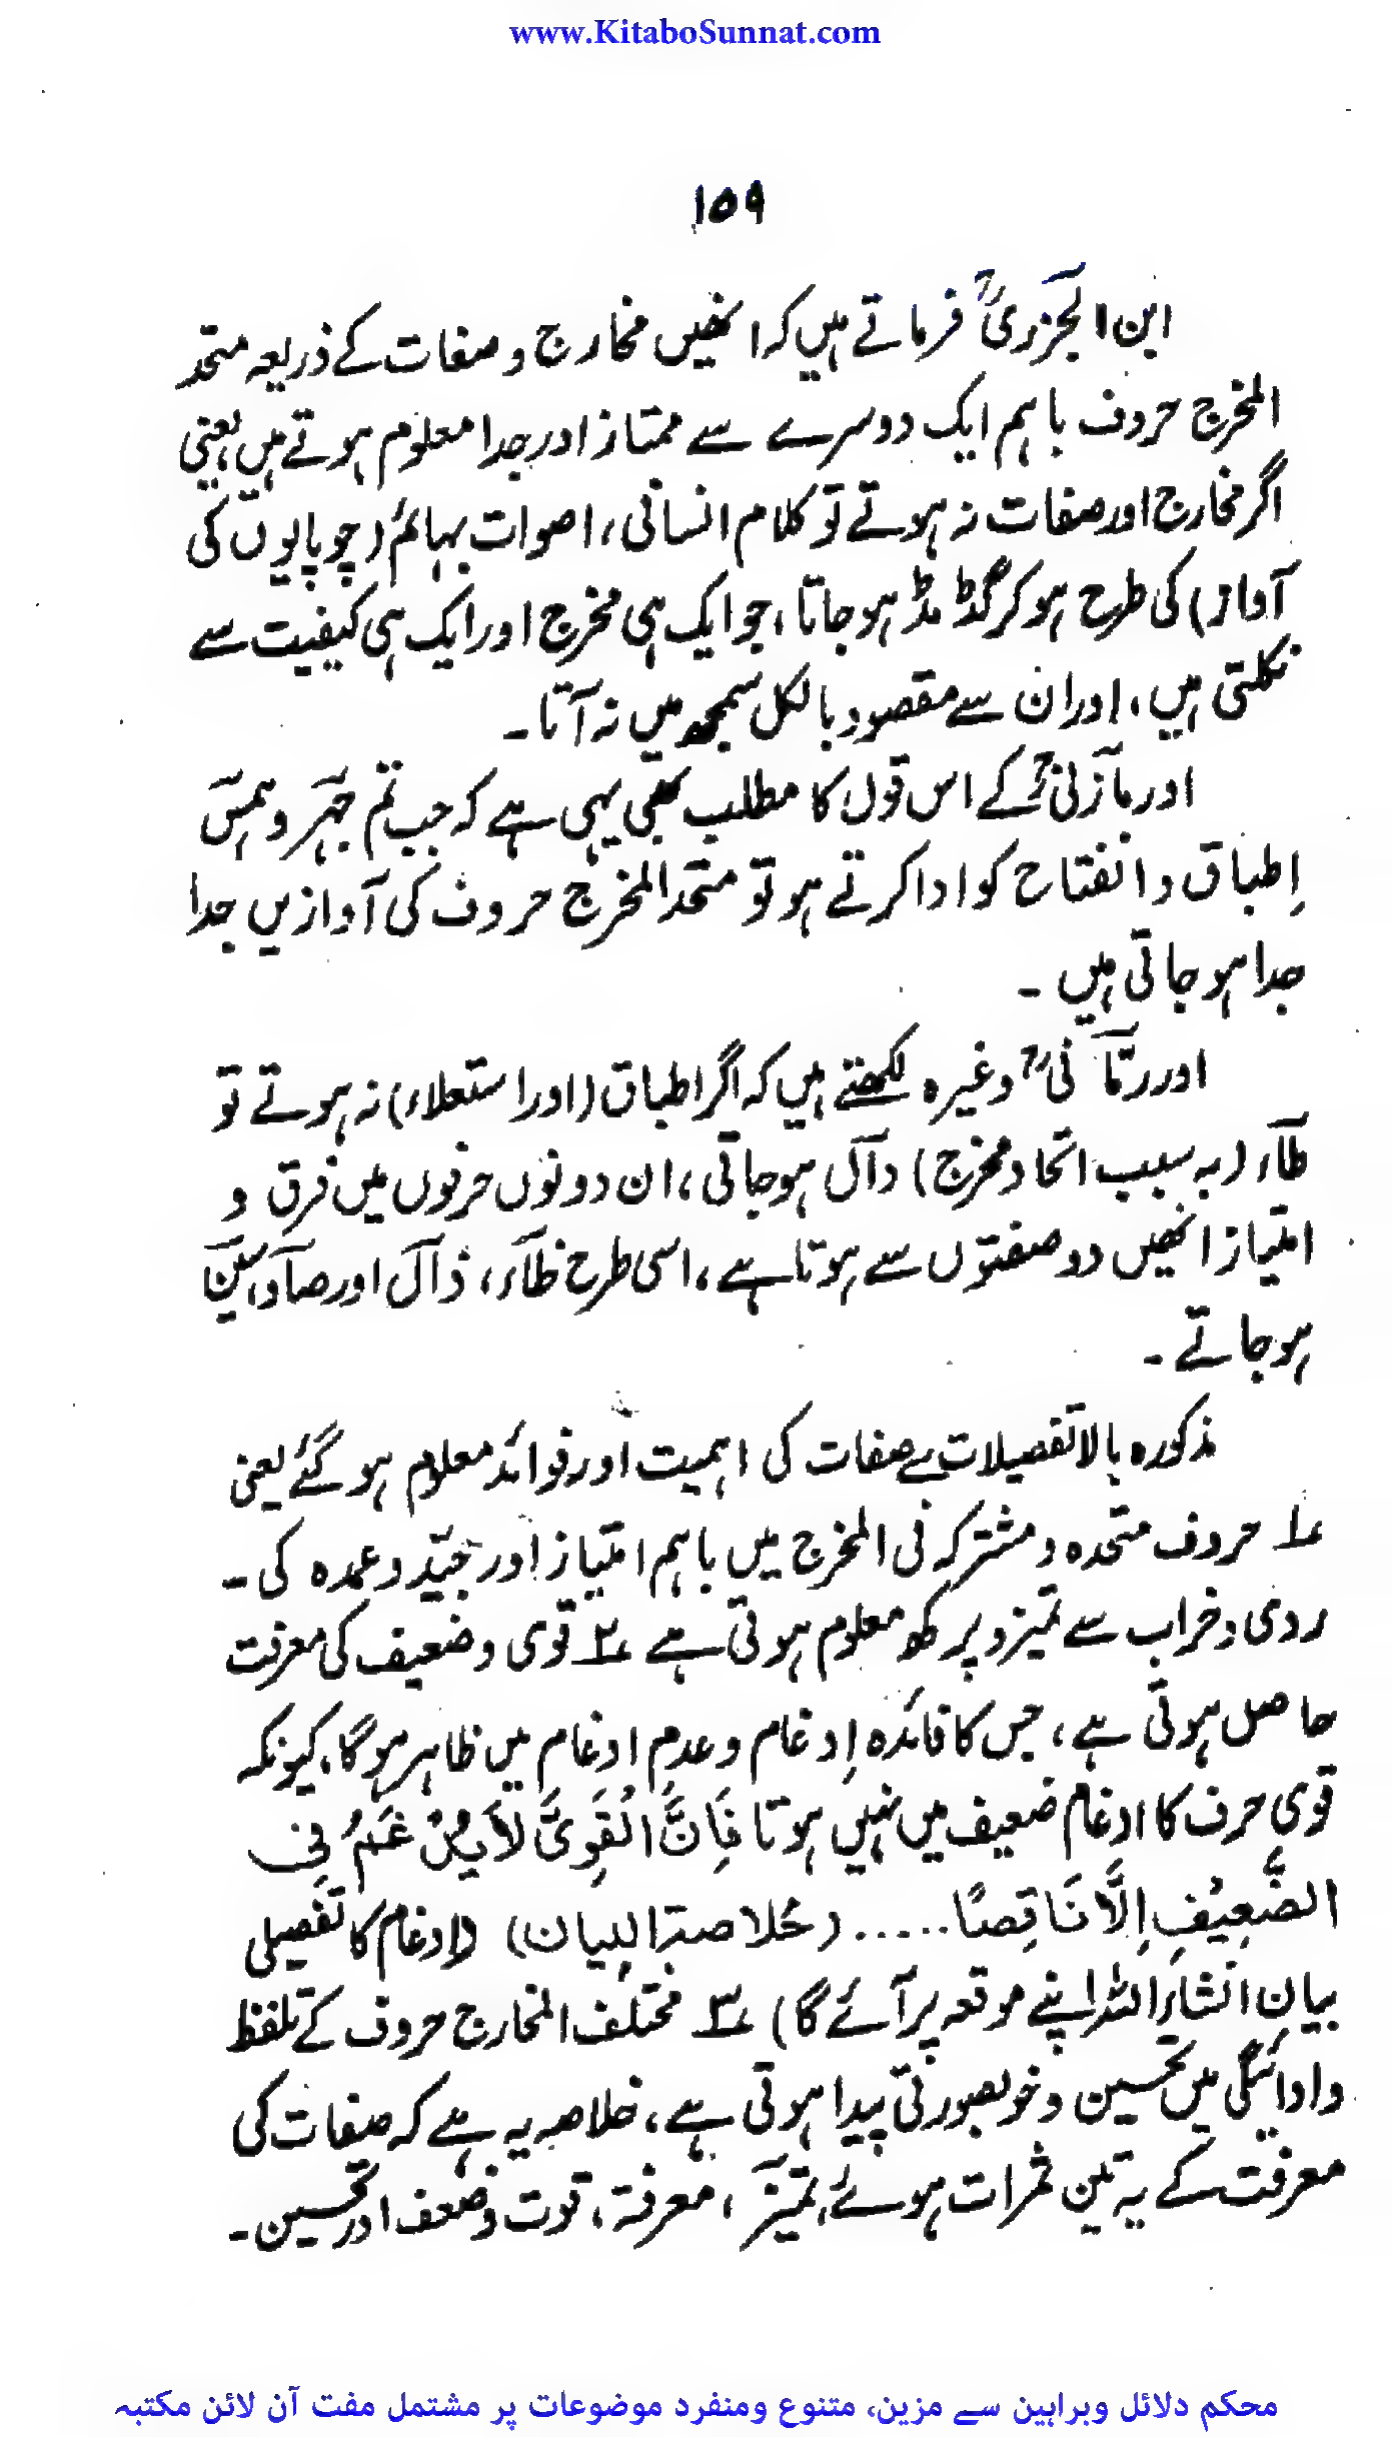 www.KitaboSunnat.com
۱۵۹
ابن الجَزریؒ فرماتے ہیں کہ انھیں مخارج و صفات کے ذریعہ متحد
المخرج حروف باہم ایک دوسرے سے ممتاز اور جدا معلوم ہوتے ہیں یعنی
اگر مخارج اور صفات نہ ہوتے تو کلام انسانی، اصوات بہائم (چوپایوں کی
آواز) کی طرح ہو کر گڈ مڈ ہو جاتا، جو ایک ہی مخرج اور ایک ہی کیفیت سے
نکلتی ہیں، اور ان سے مقصود بالکل سمجھ میں نہ آتا۔
اور مازنیؒ کے اس قول کا مطلب بھی یہی ہے کہ جب تم جہر و ہمس
اِطباق و انفتاح کو ادا کرتے ہو تو متحد المخرج حروف کی آوازیں جدا
جدا ہو جاتی ہیں ۔
اور رمّانیؒ وغیرہ لکھتے ہیں کہ اگر اطباق (اور استعلاء) نہ ہوتے تو
طآء (بہ سبب اتحاد مخرج) دآل ہو جاتی، ان دونوں حرفوں میں فرق و
امتیاز انھیں دو صفتوں سے ہوتا ہے، اسی طرح ظآء، ذآل اور صآد، سین
ہو جاتے ۔
مذکورہ بالا تفصیلات سے صفات کی اہمیت اور فوائد معلوم ہو گئے یعنی
؏۱ حروف متحدہ و مشترکہ فی المخرج میں باہم امتیاز اور جیّد و عمدہ کی ۔
ردی و خراب سے تمیز و پرکھ معلوم ہوتی ہے ؏۲ قوی و ضعیف کی معرفت
حاصل ہوتی ہے، جس کا فائدہ اِدغام و عدم ادغام میں ظاہر ہو گا، کیونکہ
قوی حرف کا ادغام ضعیف میں نہیں ہوتا فَاِنَّ الْقَوِیَّ لَا یُدْغَمُ فِی
الضَّعِیْفِ اِلَّا نَاقِصًا ..... (خُلاصۃ البیان) (ادغام کا تفصیلی
بیان انشاء اللہ اپنے موقعہ پر آئے گا) ؏۳ مختلف المخارج حروف کے تلفظ
و ادائیگی میں تحسین و خوبصورتی پیدا ہوتی ہے، خلاصہ یہ ہے کہ صفات کی
معرفت کے یہ تین ثمرات ہوئے، تمیز، معرفۃ، قوت و ضعف اور تحسین۔
محکم دلائل وبراہین سے مزین، متنوع ومنفرد موضوعات پر مشتمل مفت آن لائن مکتبہ